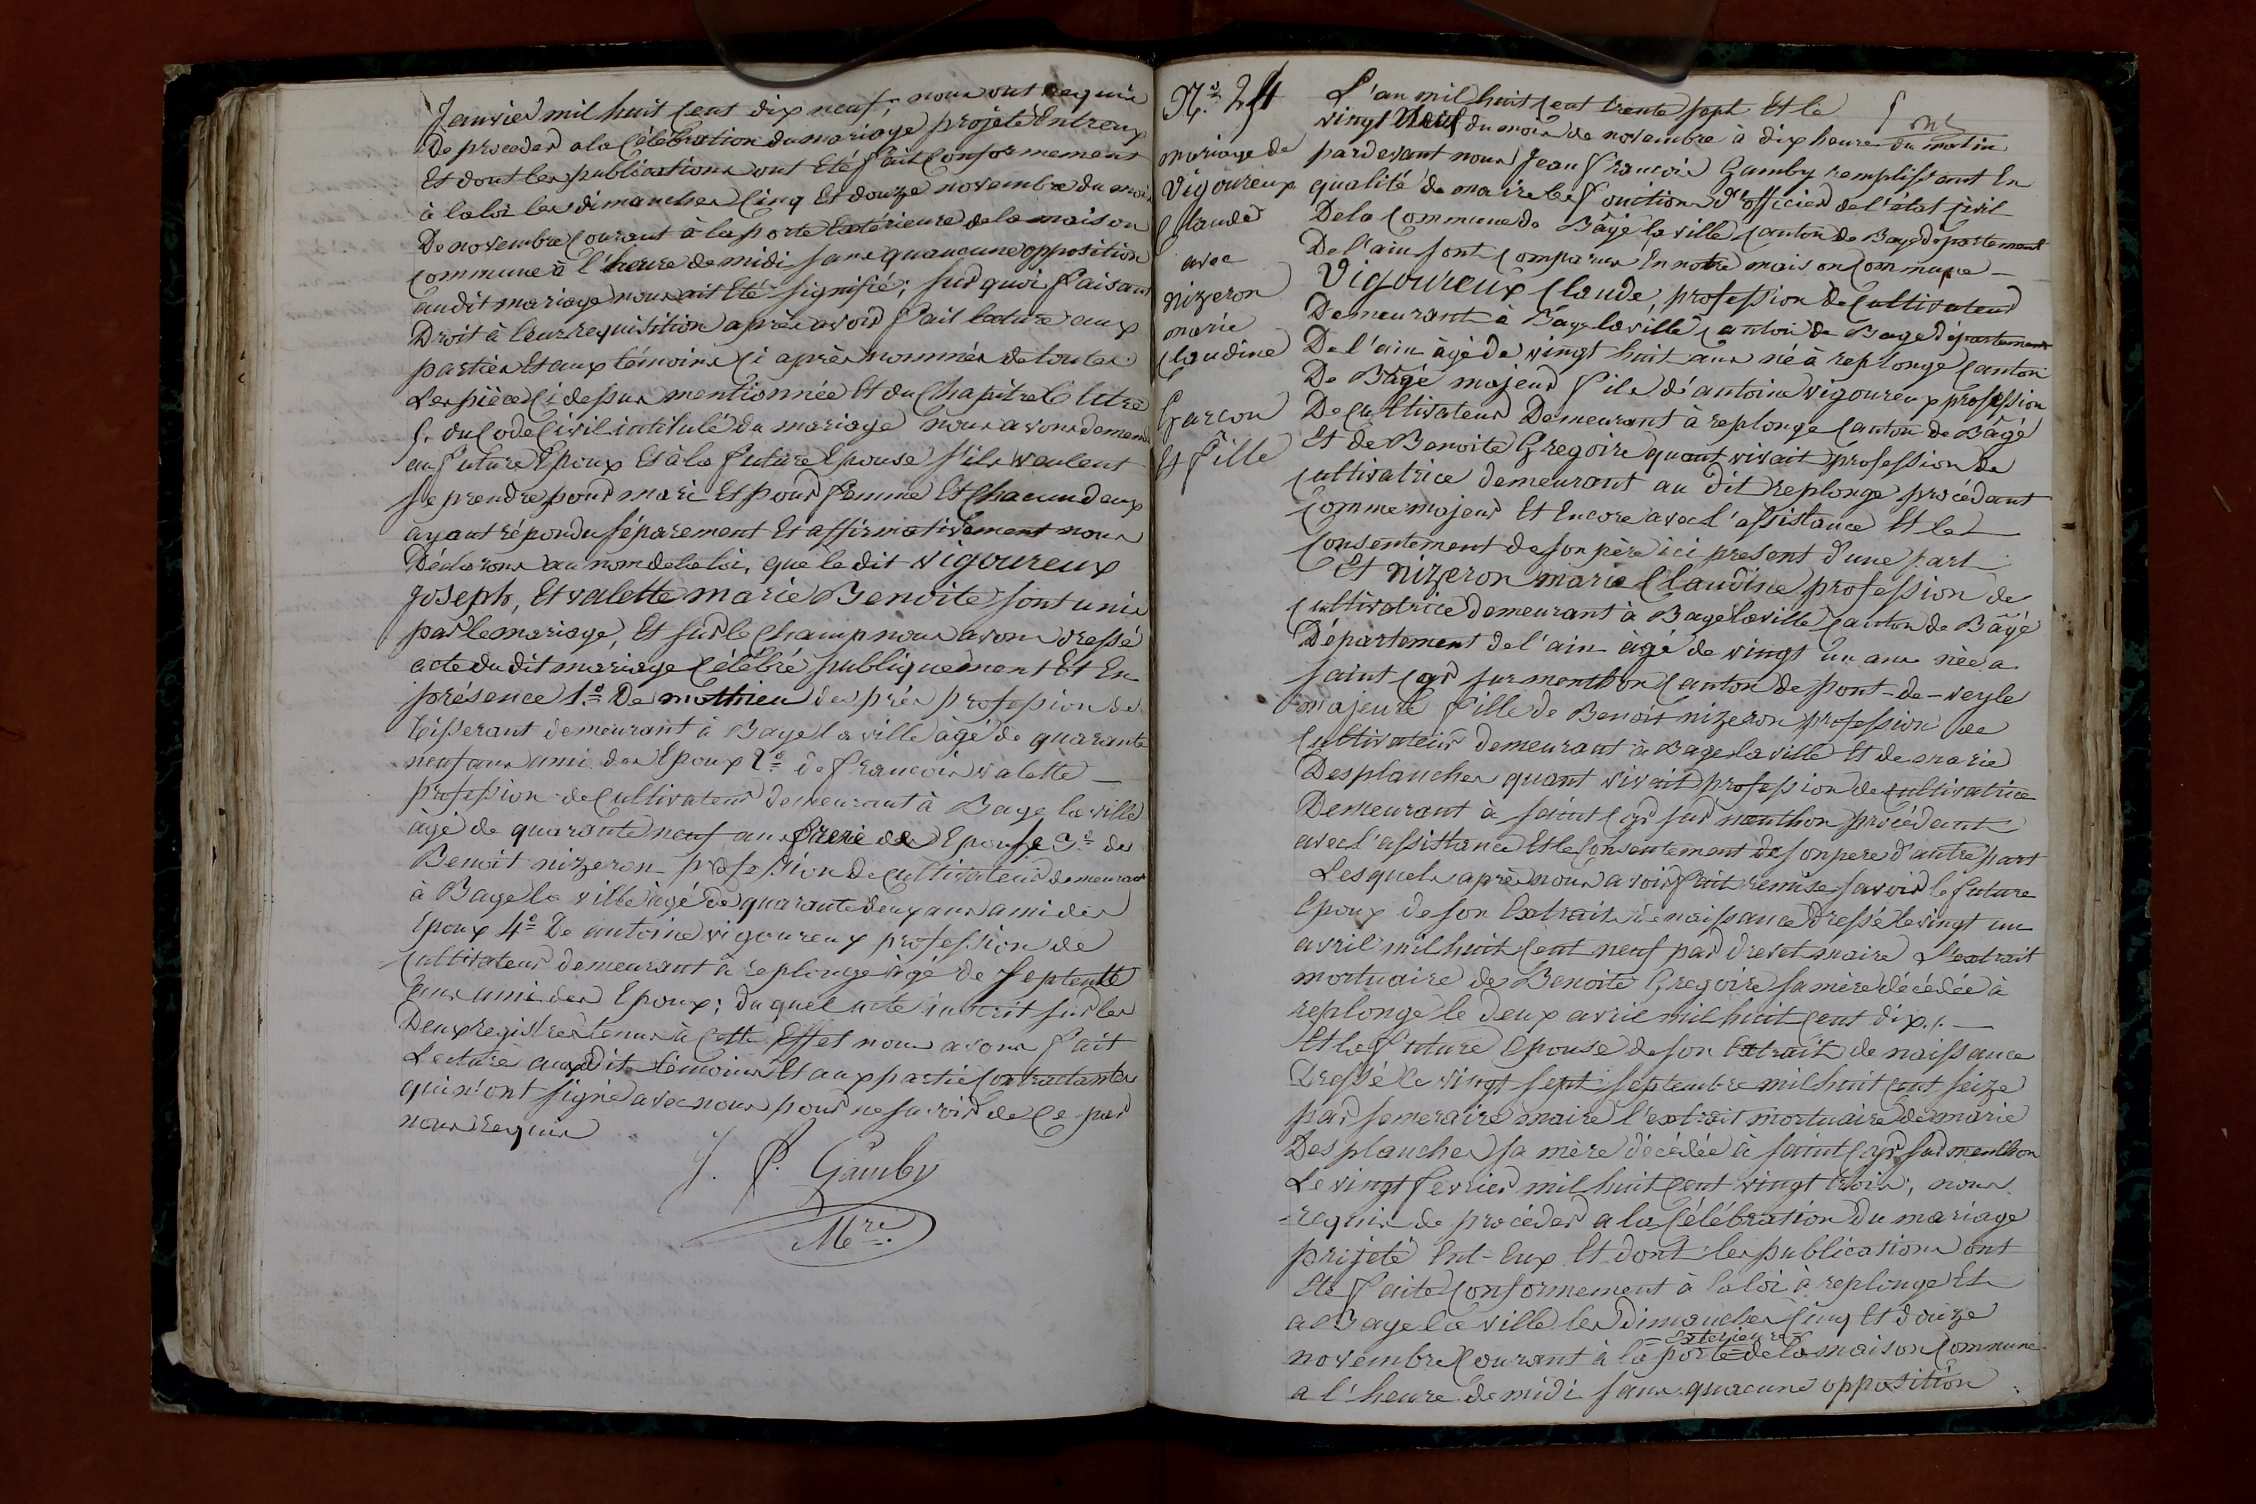 Janvier mil huit cent dix neuf; nous ont requis
De proceder a la Célébration du mariage projeté Entreux
Et dont les publications ont Eté fait Conformement
à la loi les dimanches Cinq Et douze novembre du mois
De novembre Courant à la porte Extérieure de la maison
Commune à l'heure de midi sans quaucune opposition
audit mariage nous ait Eté signifié; sur quoi faisant
Droit à leur requisition après avoir fait lecture aux
parties Et aux témoins Ci après nommés de toutes
Les pièces Ci dessus mentionnée Et du Chapitre 6 titre
5. du Code Civil intitulé du mariage nous avons demandé
au future Epoux Et à la future Epouse s'ils veulent
se prendre pour mari Et pour femme Et Chacun deux
ayant répondu séparement Et affirmativement nous
Déclarons au nom de la loi, que le dit vigoureux
Joseph, Et valette marie Benoite sont unis
par le mariage, Et sur le Champ nous avons dressé
acte du dit mariage Célébré publiquement Et En
présence 1.º De mathieu desprès profession de
tisserant demeurant à Bage la ville âgé de quarante
neuf ans ami des Epoux 2.º de francois valette
profession de Cultivateur demeurant à Bage la ville
âgé de quarante neuf ans frere de Epouse 3.º de
Benoit nizeron profession de Cultivateur demeurant
à Bage la ville âgé de quarante deux ans ami des
Epoux 4.º De antoine vigoureux profession de
Cultivateur demeurant à replonge âgé de septente
ans ami des Epoux; du quel acte inscrit sur les
Deux registres tenus à Cette Effet nous avons fait
Lecture auxdit témoins Et aux parties Contractantes
qui n'ont signé avec nous pour ne savoir de Ce par
nous requis
J. F. Gamby
M.re
N.º 24
mariage de
Vigoureux
Claude
avec
nizeron
marie
Claudine
Garcon
Et fille
L'an mil huit Cent trente sept Et le
vingt Neuf du mois de novembre à dix heures du matin
pardevant nous Jean francois Gamby remplissant En
qualité de maire les fonctions d'officier de l'état Civil
De la Commune de Bâgé la ville Canton de Bage Département
De l'ain sont Comparus En notre maison Commune
Vigoureux Claude, profession de Cultivateur
Demeurant à Bage la ville Canton de Bage département
De l'ain âgé de vingt huit ans né à replonge Canton
De Bâgé majeur fils d'antoine vigoureux profession
De Cultivateur Demeurant à replonge Canton de Bâgé
Et de Benoite Gregoire quant vivait profession de
Cultivatrice demeurant au dit replonge procédant
Comme majeur Et Encore avec l'assistance Et le
Consentement de son père ici present d'une part
Et nizeron marie Claudine profession de
Cultivatrice demeurant à Bage la ville Canton de Bâgé
Département de l'ain âgé de vingt un ans née a
saint Cyr sur menthon Canton de pont-de-veyle
majeure fille de Benoit nizeron profession de
Cultivateur demeurant à Bage la ville Et de marie
Desplanches quant vivait profession de Cultivatrice
Demeurant à saint Cyr sur menthon procédant
avec l'assistance Et le Consentement de son pere d'autre part
Lesquels après nous avoir fait remise savoir le future
Epoux de son Extrait de naissance Dressé le vingt un
avril mil huit Cent neuf par drevet maire L'extrait
mortuaire de Benoite Gregoire sa mère décédée à
replonge le deux avril mil huit Cent dix./.
Et la future Epouse de son Extrait de naissance
Dressé le vingt sept septembre mil huit Cent seize
par semeraire maire l'extrait mortuaire de marie
Desplanches sa mère décédée à saint Cyr sur menthon
Le vingt fevrier mil huit Cent vingt trois, nous
requis de procéder a la Célébration du mariage
prijeté Ent-Eux Et dont les publications ont
Eté faite Conformement à la loi à replonge Et
a Bage la ville les Dimanches Cinq Et douze
novembre Courant à la porte de la maison Commune
Exterieure
a l'heure de midi sans quacune opposition